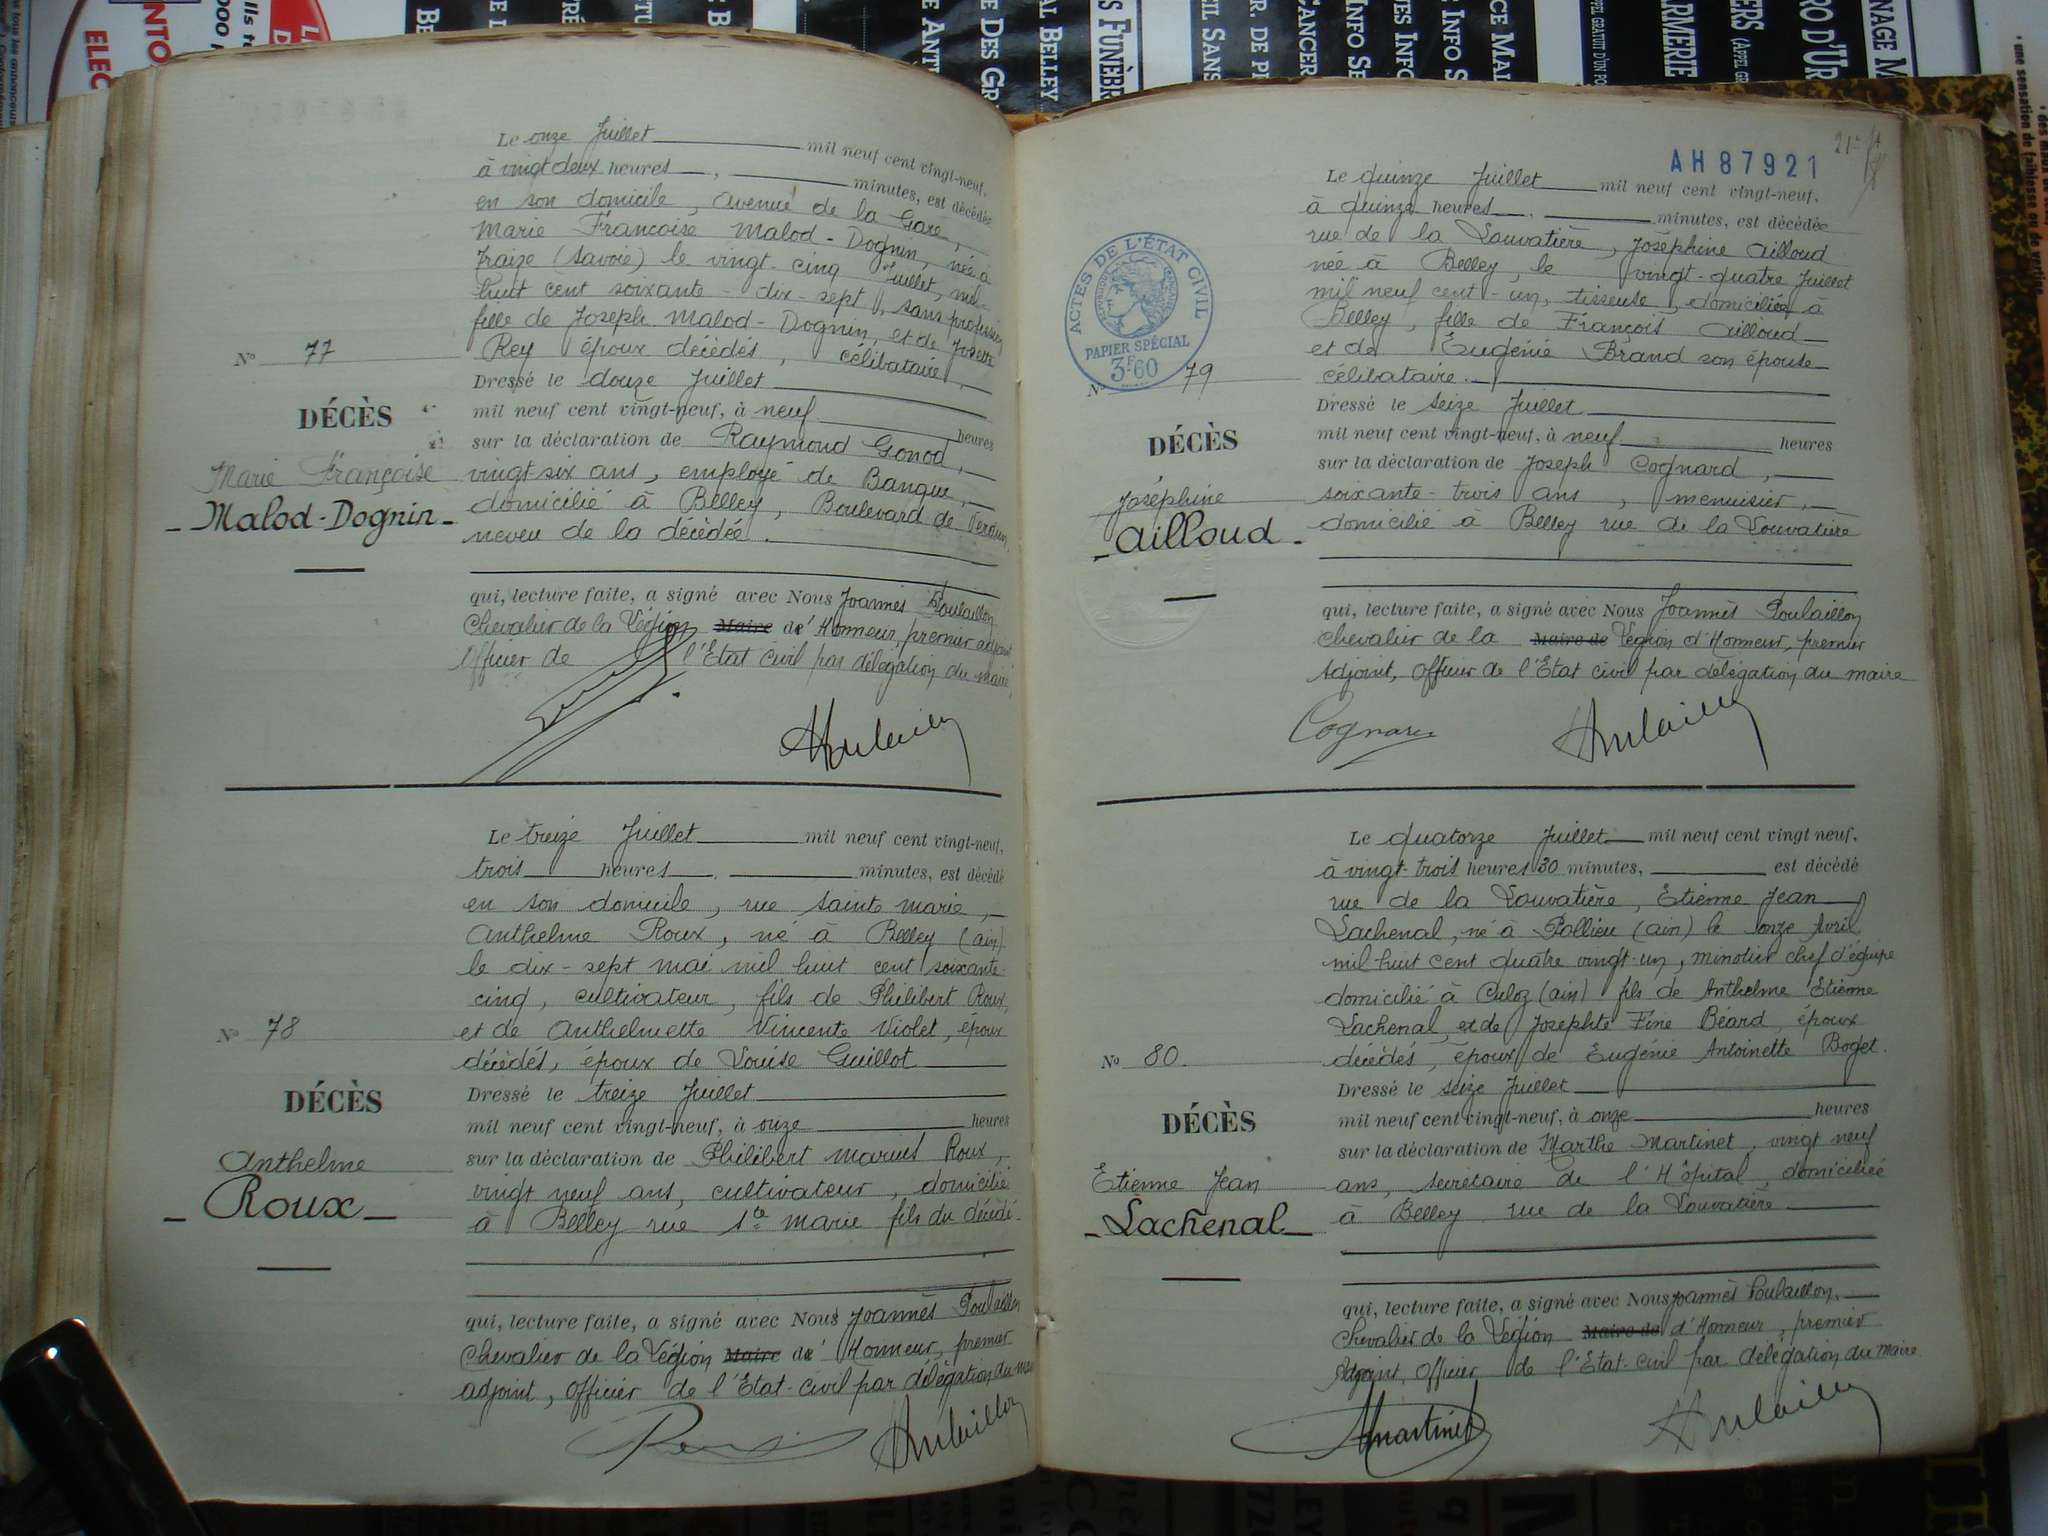 Le onze Juillet mil neuf cent vingt-neuf,
à vingt deux heures, minutes, est décédée
en son domicile, avenue de la Gare,
Marie Françoise Malod-Dognin, née à
Traize (Savoie) le vingt-cinq Juillet, mil
huit cent soixante-dix-sept, sans profession
fille de Joseph Malod-Dognin, et de Josette
Rey époux décédés, célibataire.
Dressé le douze Juillet
mil neuf cent vingt-neuf, à neuf heures
sur la déclaration de Raymond Gonod,
vingt six ans, employé de Banque,
domicilié à Belley, Boulevard de Verdun,
neveu de la décédée.
qui, lecture faite, a signé avec Nous Joannès Poulaillon
Chevalier de la Légion Maire de l'Honneur, premier adjoint
Officier de l'Etat civil par délégation du maire,
Nº 77
DÉCÈS
Marie Françoise
Malod-Dognin
Le treize Juillet mil neuf cent vingt-neuf,
trois heures, minutes, est décédé
en son domicile, rue Sainte Marie,
Anthelme Roux, né à Belley (ain)
le dix-sept mai mil huit cent soixante-
cinq, cultivateur, fils de Philibert Roux,
et de Anthelmette Vincente Violet, époux
décédés, époux de Louise Guillot
Dressé le treize Juillet
mil neuf cent vingt-neuf, à onze heures
sur la déclaration de Philibert Marius Roux,
vingt neuf ans, cultivateur, domicilié
à Belley rue Ste Marie fils du décédé.
qui, lecture faite, a signé avec Nous Joannès Poulaillon
Chevalier de la Légion Maire de Honneur, premier
adjoint, Officier de l'Etat-civil par délégation du maire
Poulaillon
Nº 78
DÉCÈS
Anthelme
Roux
AH 87921
Le quinze Juillet mil neuf cent vingt-neuf,
à quinze heures, minutes, est décédée
rue de la Louvatière, Joséphine Ailloud
née à Belley, le vingt-quatre Juillet
mil neuf cent-un, tisseuse, domiciliée à
Belley, fille de François Ailloud
et de Eugénie Brand son épouse
célibataire.
Dressé le seize Juillet
mil neuf cent vingt-neuf, à neuf heures
sur la déclaration de Joseph Cognard,
soixante-trois ans, menuisier,
domicilié à Belley rue de la Louvatière
qui, lecture faite, a signé avec Nous Joannès Poulaillon
Chevalier de la Maire de Légion d'Honneur, premier
Adjoint, Officier de l'Etat civil par délégation du maire
Cognard
ACTES DE L'ÉTAT CIVIL
PAPIER SPÉCIAL
3F60
Nº 79
DÉCÈS
Joséphine
Ailloud
Le quatorze Juillet mil neuf cent vingt neuf,
à vingt-trois heures 30 minutes, est décédé
rue de la Louvatière, Etienne Jean
Lachenal, né à Pollieu (ain) le onze Avril
mil huit cent quatre vingt-un, minotier chef d'équipe
domicilié à Culoz (ain) fils de Anthelme Etienne
Lachenal, et de Josephte Fine Béard, époux
décédés, époux de Eugénie Antoinette Boget.
Dressé le seize Juillet
mil neuf cent vingt-neuf, à onze heures
sur la déclaration de Marthe Martinet, vingt neuf
ans, secrétaire de l'Hôpital, domiciliée
à Belley rue de la Louvatière
qui, lecture faite, a signé avec Nous Joannès Poulaillon,
Chevalier de la Légion Maire de d'Honneur, premier
Adjoint, Officier de l'Etat-civil par délégation du maire
Martinet
Nº 80.
DÉCÈS
Etienne Jean
Lachenal